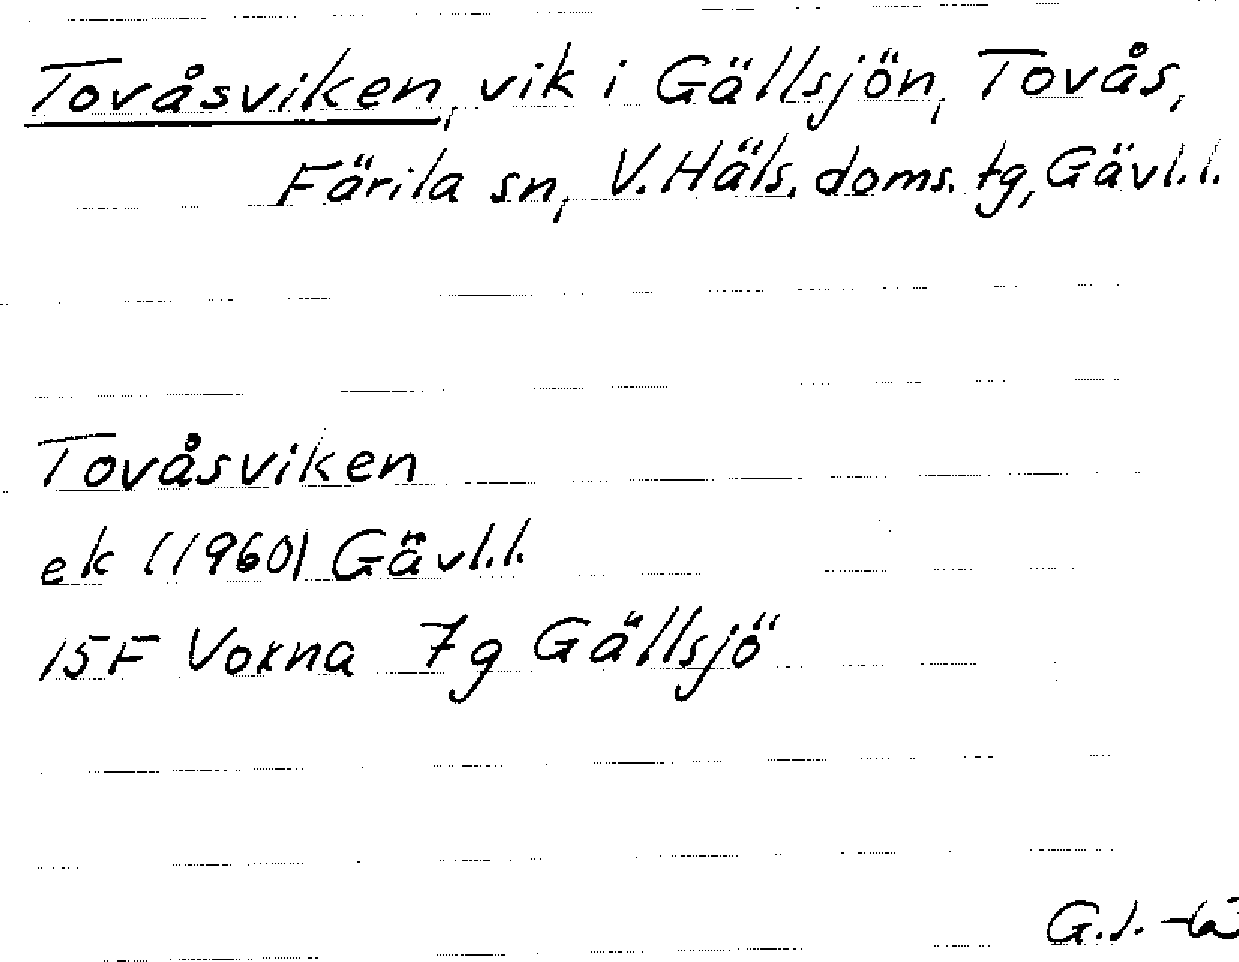 Tovåsviken, vik i Gällsjön, Tovås,
Färila sn, V.Häls. doms. tg, Gävl.l.
Tovåsviken
ek (1960) Gävl.l.
15F Voxna 7g Gällsjö